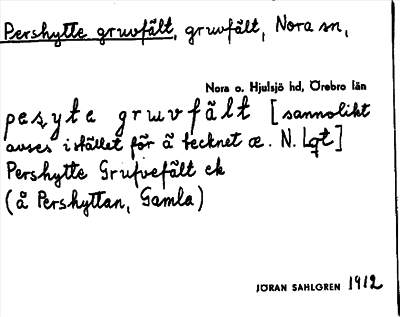 Pershytte gruvfält, gruvfält, Nora sn,
Nora o. Hjulsjö hd, Örebro län
pesyte gruvfält [sannolikt
avses istället för å tecknet æ. N. Lqt]
Pershytte Grufvefält ek
(å Pershyttan, Gamla)
JÖRAN SAHLGREN 1912